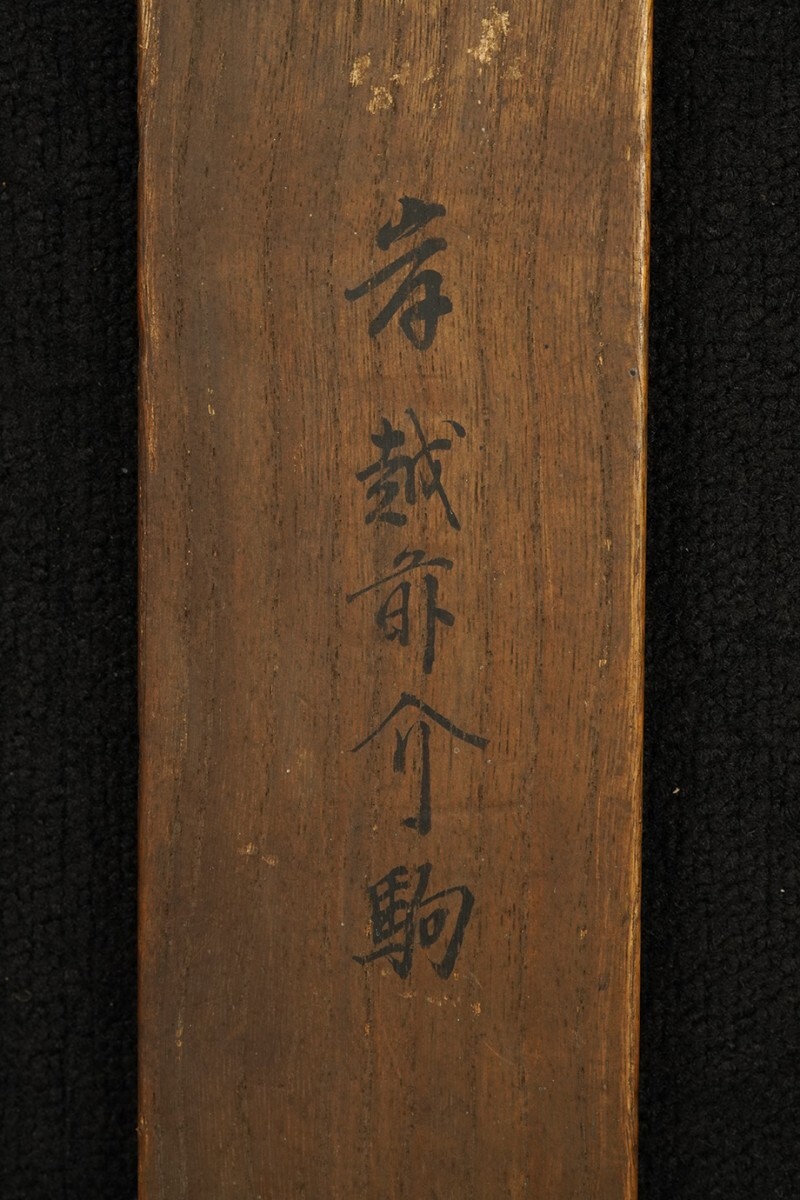 岸越前介駒